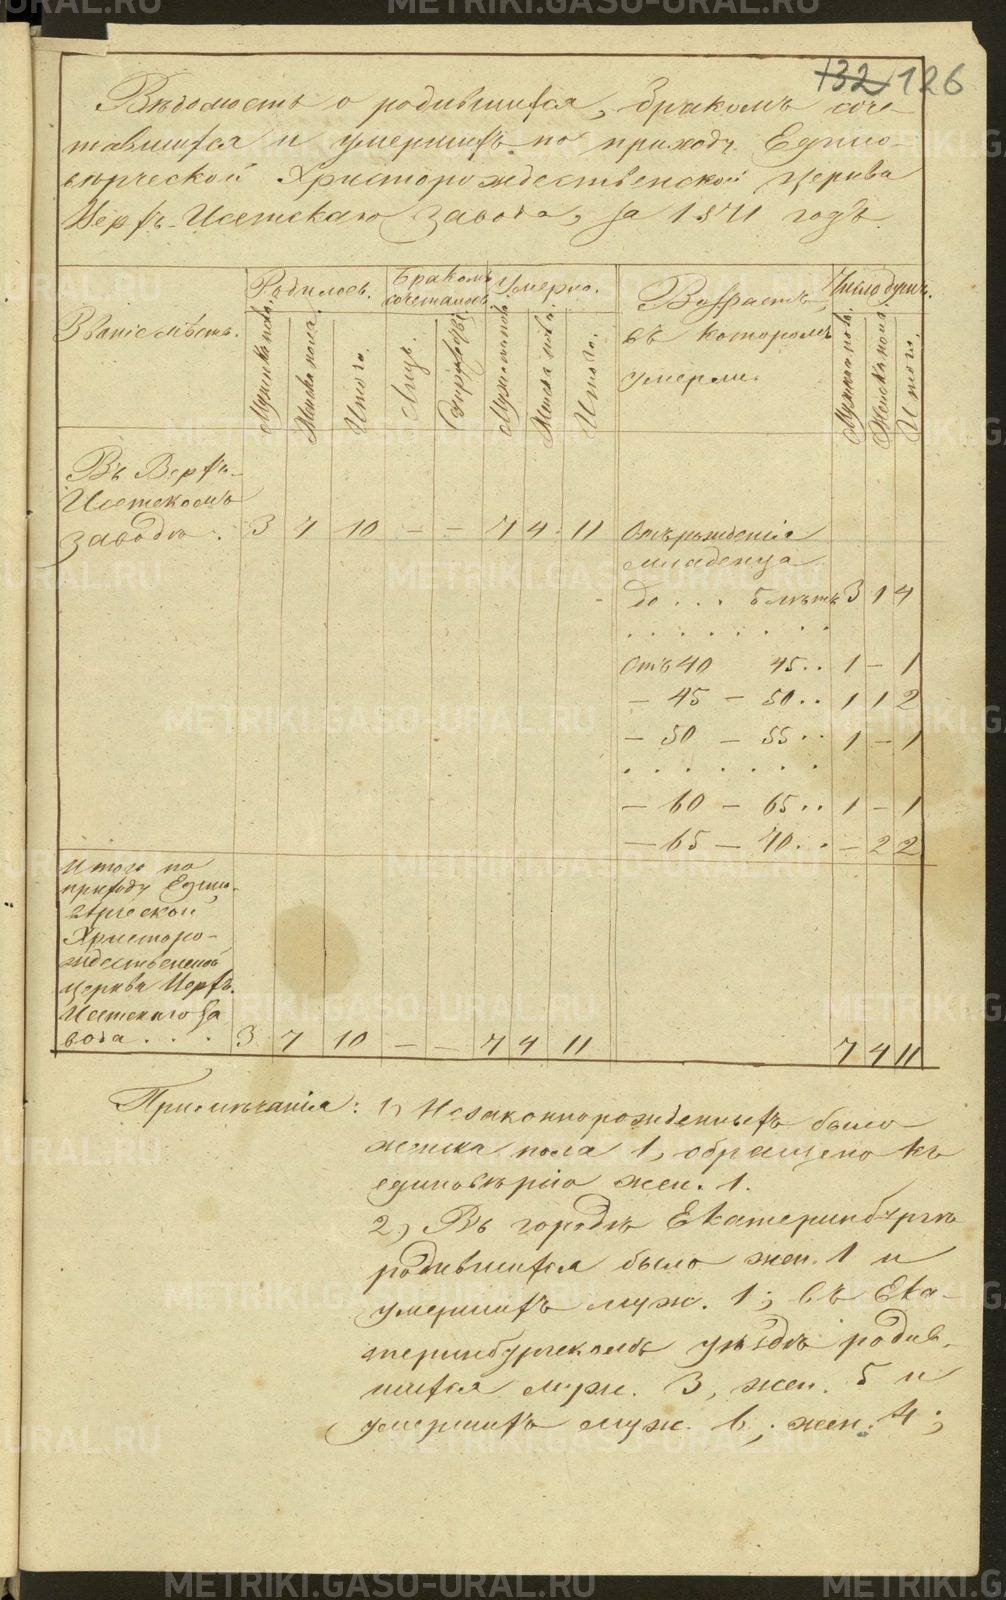 132 126
Вѣдомость о родившихся, бракомъ соче-
тавшихся и умершихъ по приходу Едино-
вѣрческой Христорождественской церкви
Верхъ-Исетскаго завода, за 1871 годъ.
Званіе мѣстъ.
Родилось.
Бракомъ сочеталось
Умерло.
Возрастъ,
въ которомъ
умерли.
Число душъ.
Мужска пола.
Женска пола.
Итого.
Лицъ.
Мужска пола.
Женска пола.
Итого.
Мужска пола.
Женска пола
Итого.
Въ Верхъ-
Исетскомъ
заводѣ. 3 7 10 — — 7 4 11
Отъ рожденія
младенца
до . . . 5 лѣтъ 3 1 4
. . . . . . . .
Отъ 40 45 . . 1 — 1
— 45 — 50 . . 1 1 2
— 50 — 55 . . 1 — 1
. . . . . . .
— 60 — 65 . . 1 — 1
— 65 — 70 . . — 2 2
Итого по
приходу Едино-
вѣрческой
Христоро-
ждественской
церкви Верхъ-
Исетскаго За
вода . . . 3 7 10 — — 7 4 11 7 4 11
Примѣчанія: 1) Незаконнорожденныхъ было
женска пола 1, обращено къ
единовѣрію жен. 1.
2) Въ городѣ Екатеринбургѣ
родившихся было жен. 1 и
умершихъ муж. 1; въ Ека-
теринбургскомъ уѣздѣ родив-
шихся муж. 3, жен. 5 и
умершихъ муж. 6, жен. 4;
METRIKI.GASO-URAL.RU